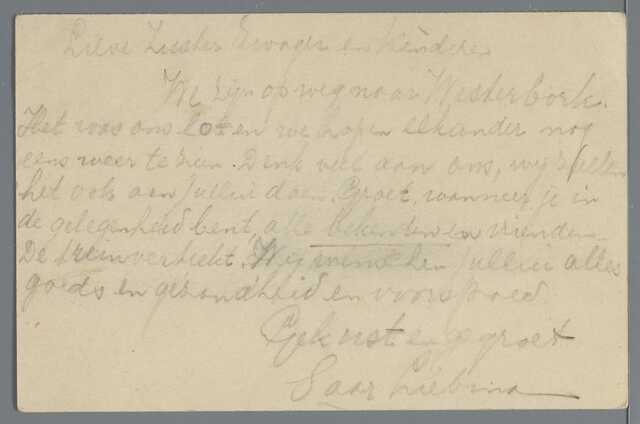 Lieve Zuster Swager en kinderen
We zijn op weg naar Westerbork.
Het was ons lot en we hopen elkander nog
eens weer te zien. Denk veel aan ons, wij zullen
het ook aan jullie doen. Groet, wanneer je in
de gelegenheid bent, alle bekenden en vrienden.
De trein vertrekt. Wij wenschen jullie alles
goeds en gezondheid en voorspoed.
Gekust en gegroet
Saar